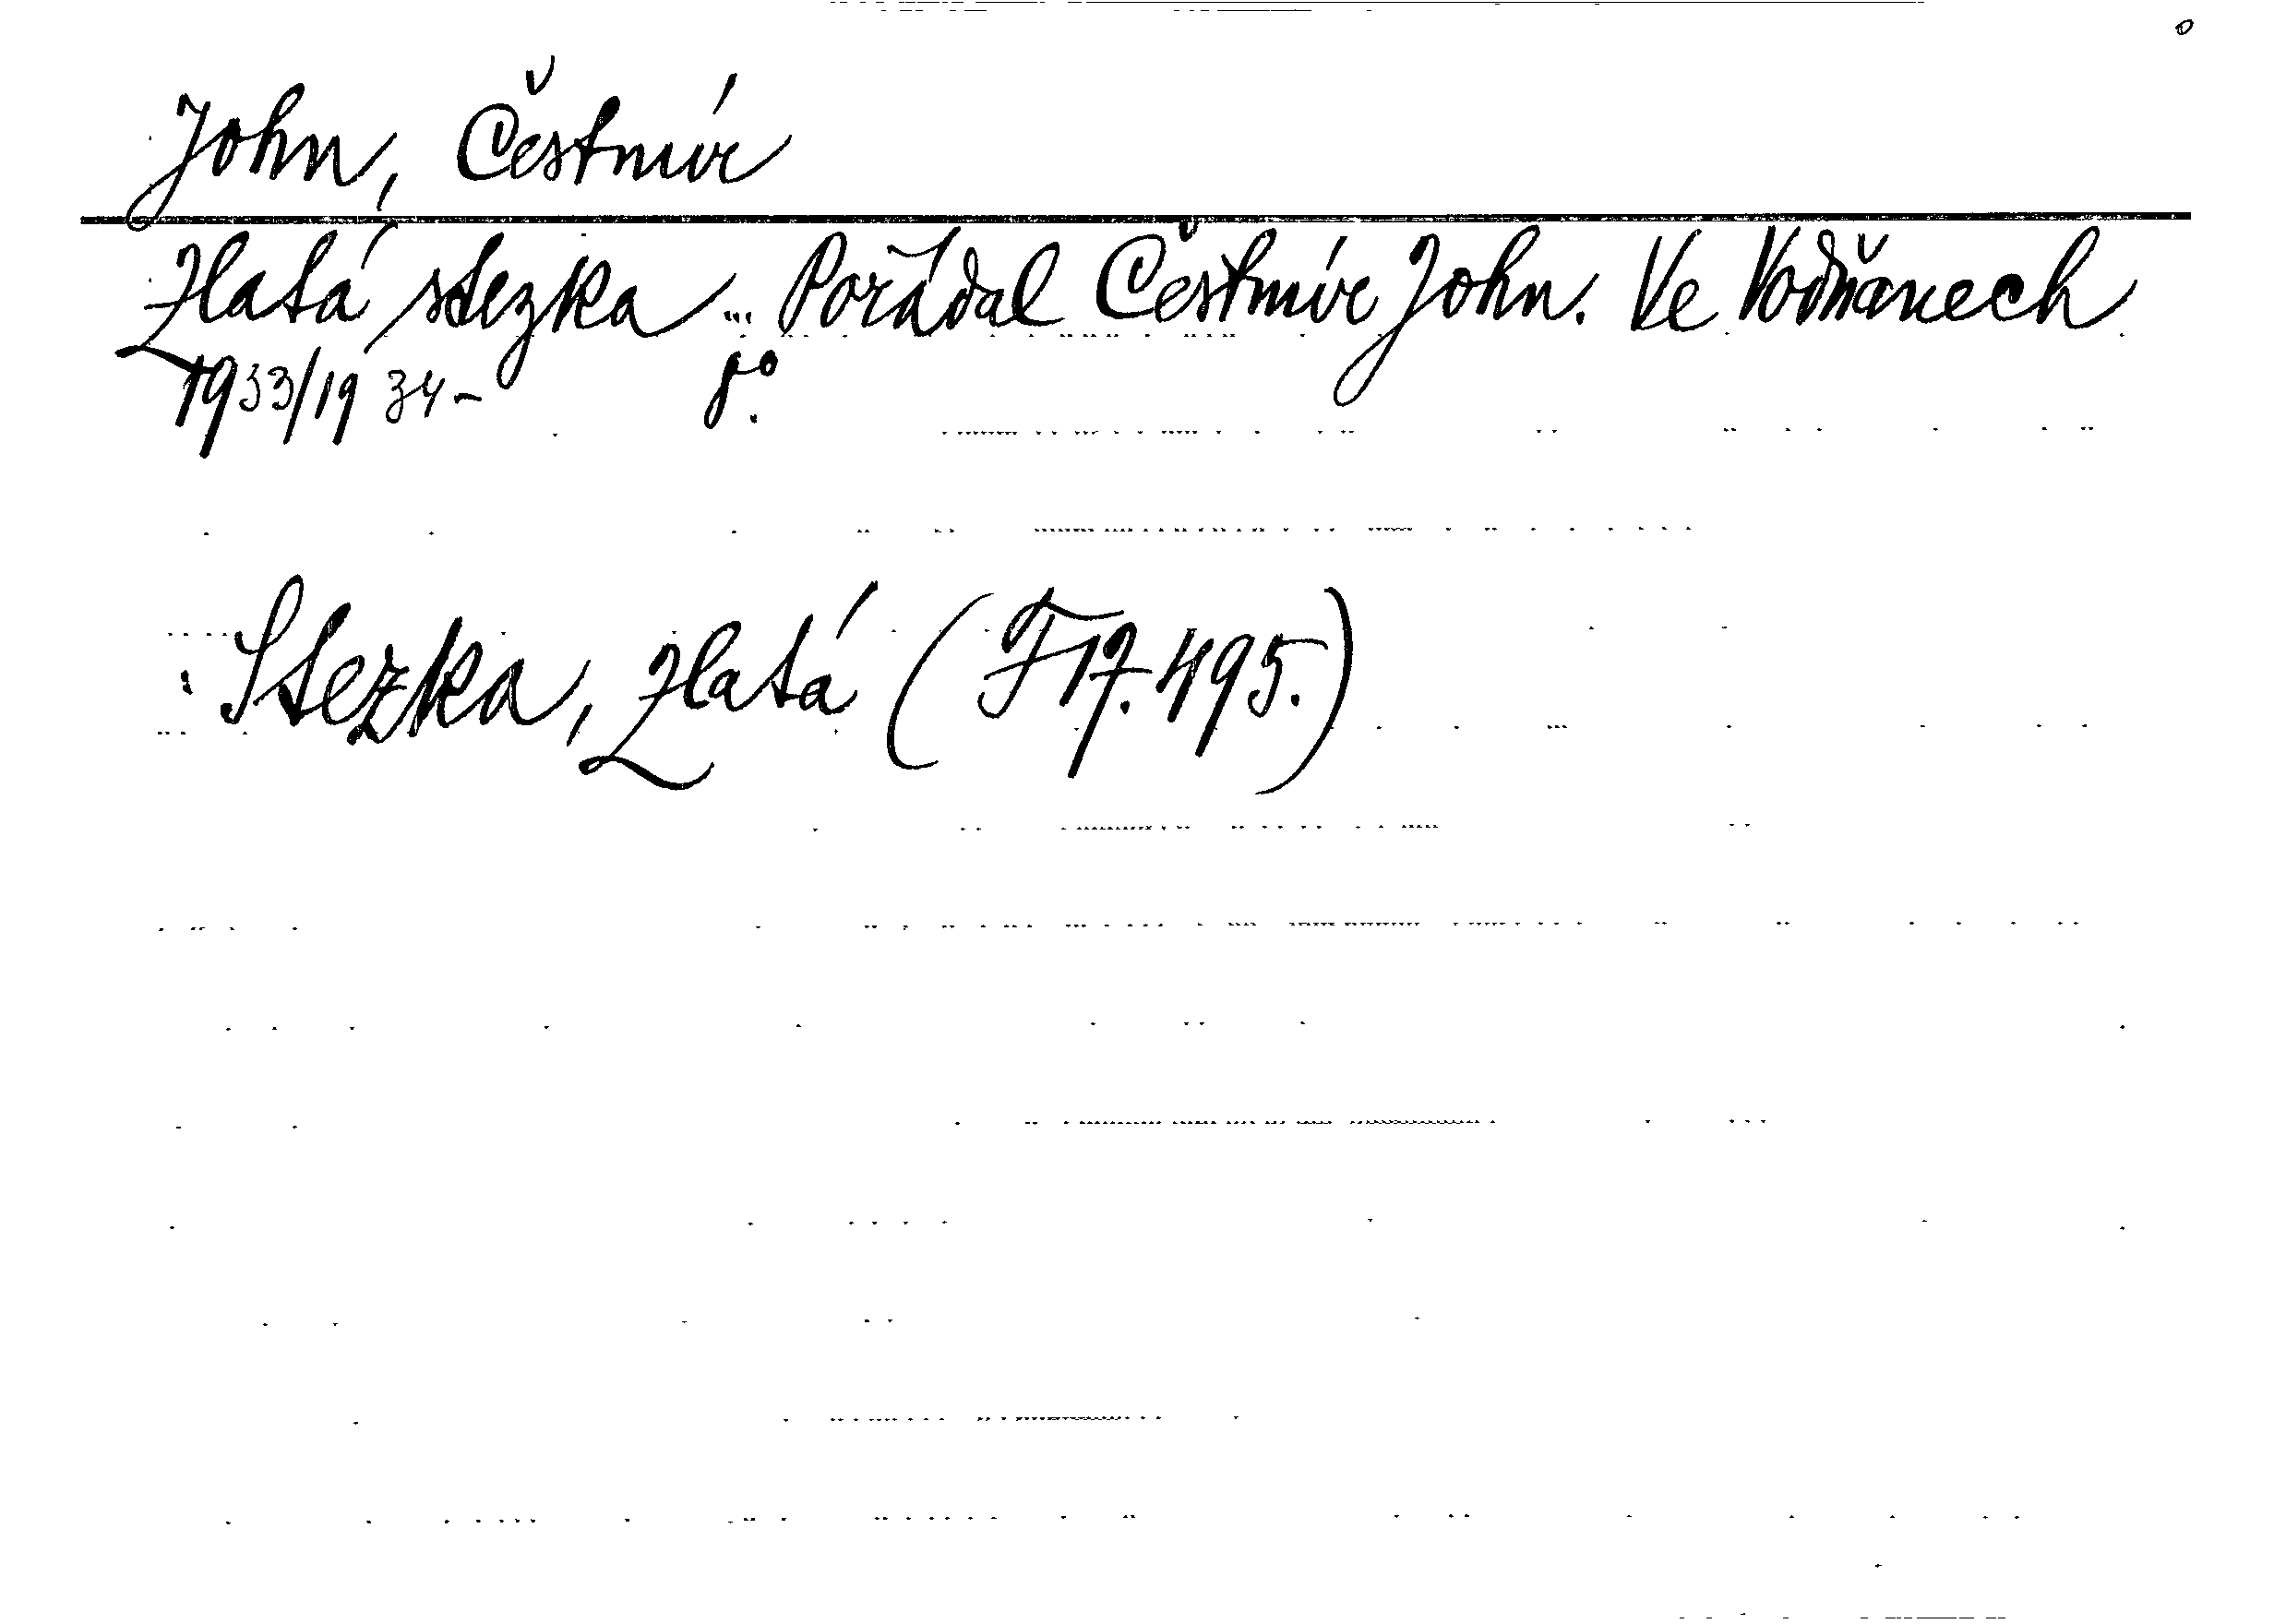 John, Čestmír
Zlatá stezka ... Pořádal Čestmír John. Ve Vodňanech
1933/1934- 8°.
: Stezka, Zlatá (F 17.495.)